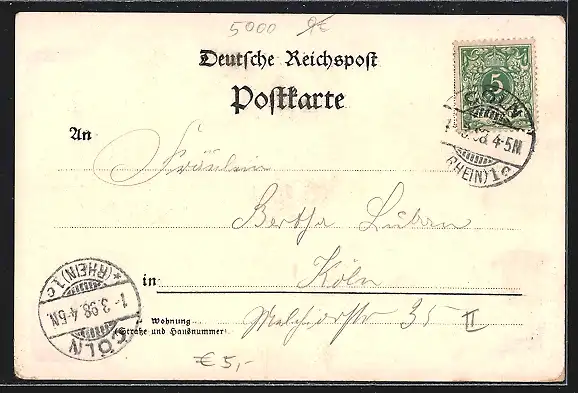 5000
Deutsche Reichspost
Postkarte
5
CÖLN
1.3.98 4-5N.
(RHEIN) 1c
An Fräulein
Bertha Lüban
in: Köln
Wohnung
(Straße und Hausnummer)
Melchiorstr 35 II
*(RHEIN) 1c
1.3.98 4-5N.
CÖLN
€ 5,-